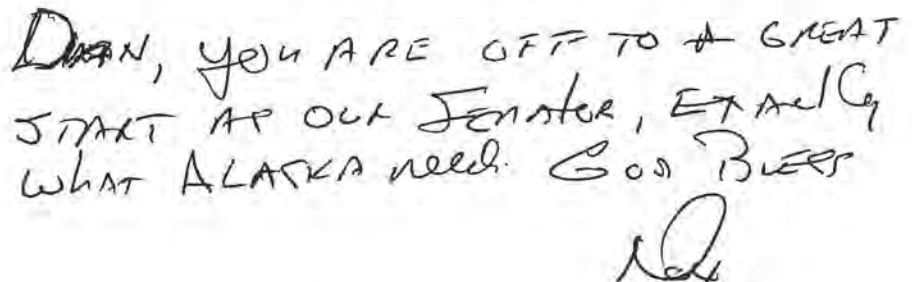 Dan, you ARE OFF TO A GREAT
START AS OUR SENATOR, EXACTLY
WHAT ALASKA need. GOD BLESS